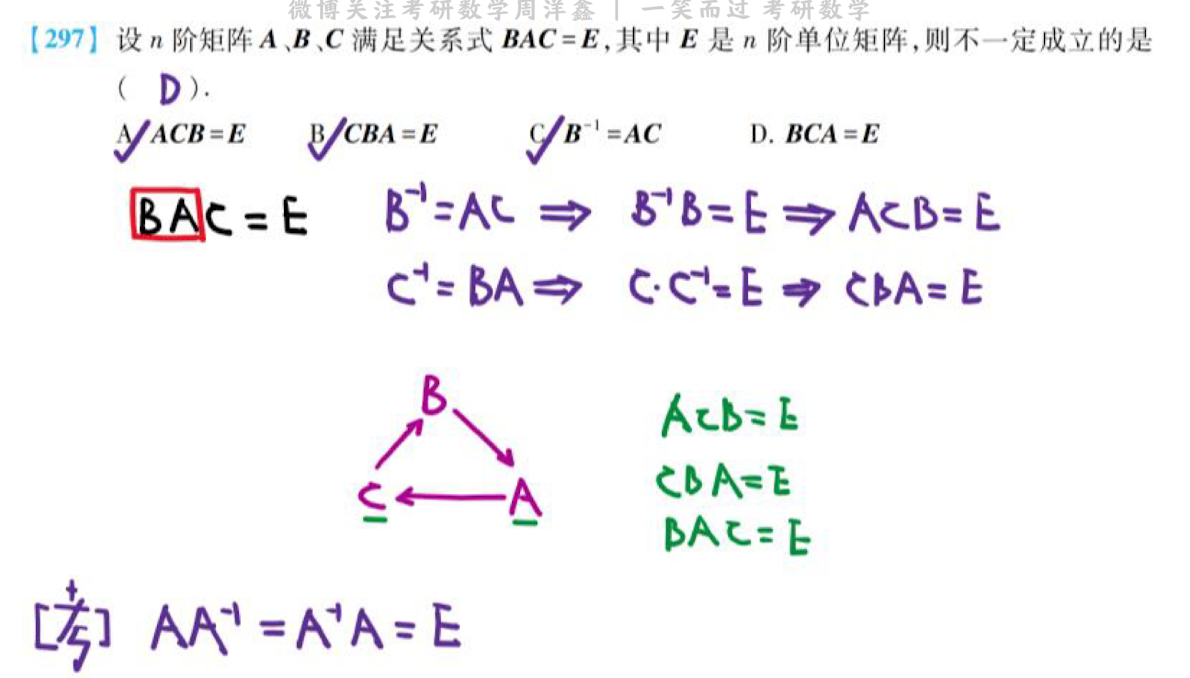 微博关注考研数学周洋鑫 | 一笑而过 考研数学
【297】设 n 阶矩阵 A、B、C 满足关系式 BAC=E,其中 E 是 n 阶单位矩阵,则不一定成立的是
( D ).
A. ACB=E B. CBA=E C. B⁻¹=AC D. BCA=E
BAC=E B⁻¹=AC ⇒ B⁻¹B=E ⇒ ACB=E
C⁻¹=BA ⇒ C·C⁻¹=E ⇒ CBA=E
B
C A
ACB=E
CBA=E
BAC=E
AA⁻¹=A⁻¹A=E